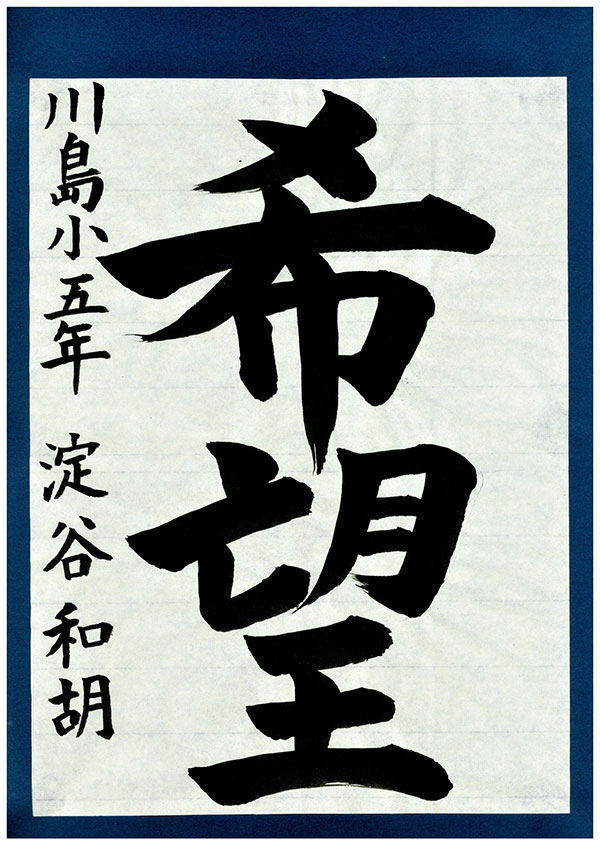 希望
川島小五年 淀谷和胡